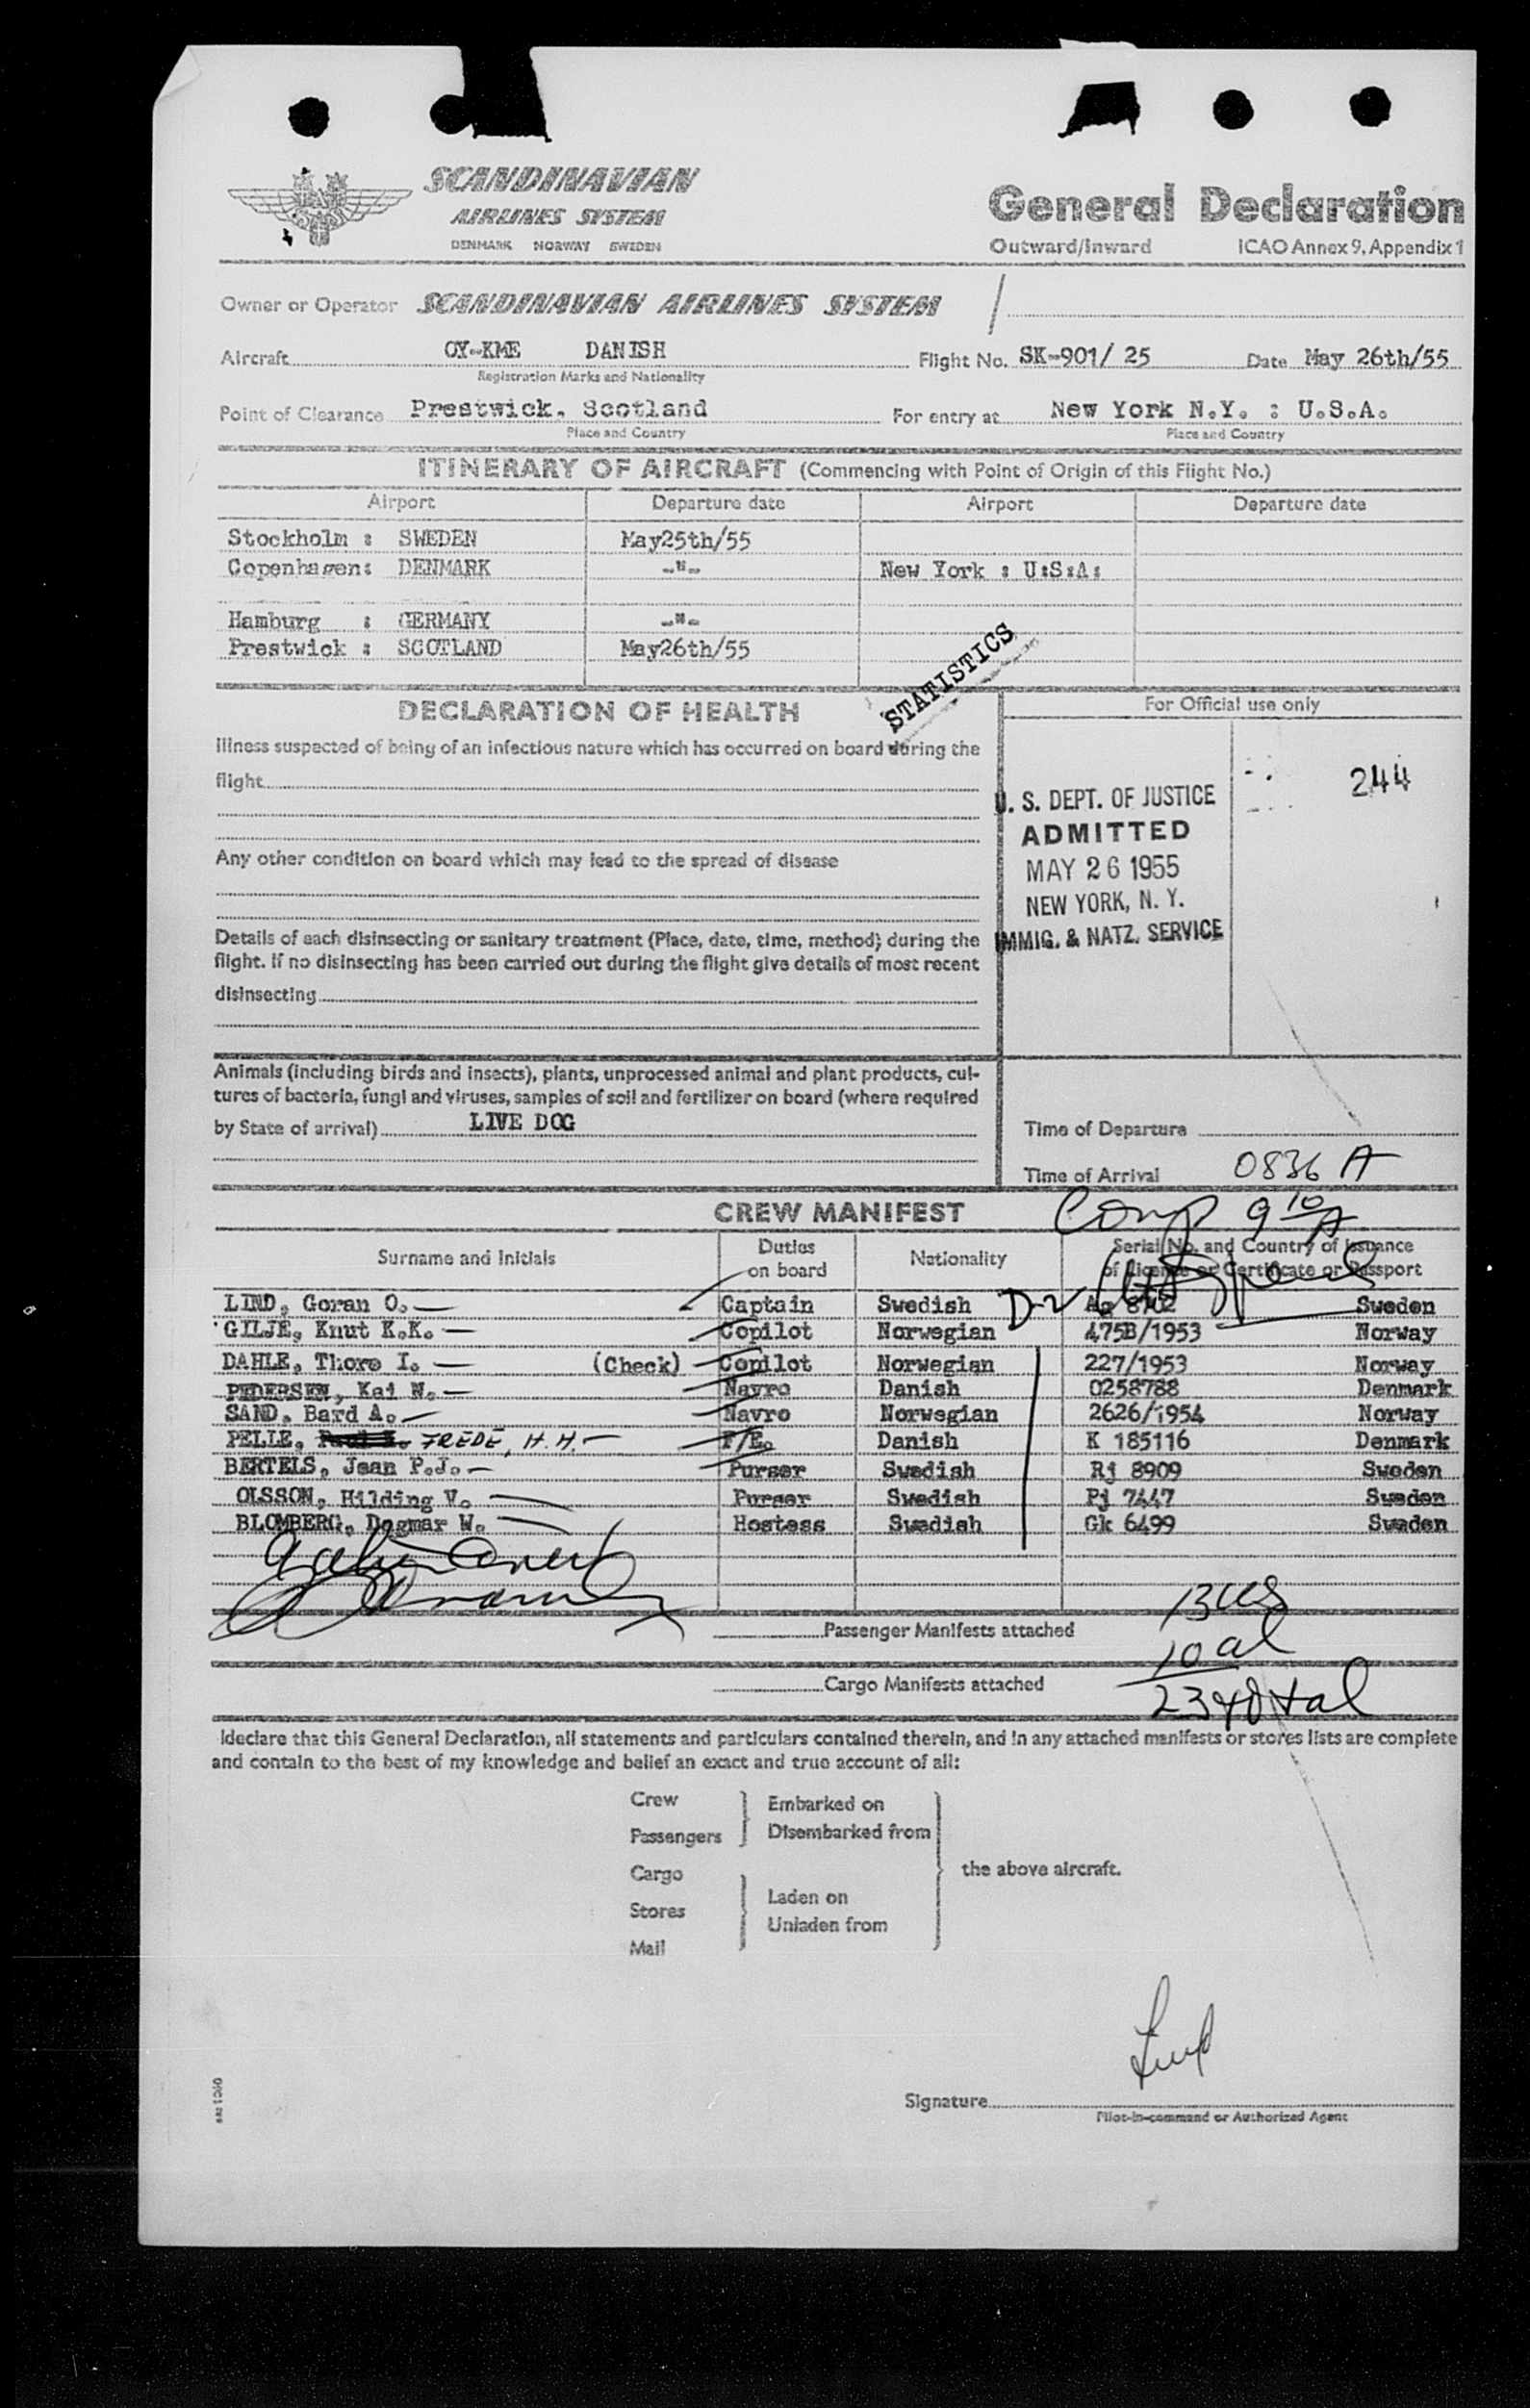 SCANDINAVIAN
AIRLINES SYSTEM
DENMARK NORWAY SWEDEN
General Declaration
Outward/Inward ICAO Annex 9, Appendix 1
Owner or Operator SCANDINAVIAN AIRLINES SYSTEM
Aircraft OY-KME DANISH Flight No. SK-901/ 25 Date May 26th/55
Registration Marks and Nationality
Point of Clearance Prestwick, Scotland For entry at New York N.Y. : U.S.A.
Place and Country Place and Country
ITINERARY OF AIRCRAFT (Commencing with Point of Origin of this Flight No.)
Airport Departure date Airport Departure date
Stockholm : SWEDEN May25th/55
Copenhagen: DENMARK -"- New York : U:S:A:
Hamburg : GERMANY -"-
Prestwick : SCOTLAND May26th/55
STATISTICS
DECLARATION OF HEALTH
For Official use only
Illness suspected of being of an infectious nature which has occurred on board during the
flight
244
U. S. DEPT. OF JUSTICE
ADMITTED
MAY 26 1955
NEW YORK, N. Y.
IMMIG. & NATZ. SERVICE
Any other condition on board which may lead to the spread of disease
Details of each disinsecting or sanitary treatment (Place, date, time, method) during the
flight. If no disinsecting has been carried out during the flight give details of most recent
disinsecting
Animals (including birds and insects), plants, unprocessed animal and plant products, cul-
tures of bacteria, fungi and viruses, samples of soil and fertilizer on board (where required
by State of arrival) LIVE DOG
Time of Departure
Time of Arrival 0836 A
Comp 9 10 A
CREW MANIFEST
Surname and Initials Duties on board Nationality Serial No. and Country of Issuance
of Licence or Certificate or Passport
LIND, Goran O. Captain Swedish D-2 Sweden
GILJE, Knut K.K. Copilot Norwegian 475B/1953 Norway
DAHLE, Thore I. (Check) Copilot Norwegian 227/1953 Norway
PEDERSEN, Kai N. Navro Danish 0258788 Denmark
SAND, Bard A. Navro Norwegian 2626/1954 Norway
PELLE, FREDE, H.H. F/E. Danish K 185116 Denmark
BERTELS, Jean P.J. Purser Swedish Rj 8909 Sweden
OLSSON, Hilding V. Purser Swedish Pj 7447 Sweden
BLOMBERG, Dagmar W. Hostess Swedish Gk 6499 Sweden
13 US
Passenger Manifests attached
10 al
Cargo Manifests attached
23 total
I declare that this General Declaration, all statements and particulars contained therein, and in any attached manifests or stores lists are complete
and contain to the best of my knowledge and belief an exact and true account of all:
Crew
Passengers
Embarked on
Disembarked from
Cargo
Stores
Mail
Laden on
Unladen from
the above aircraft.
Lind
Signature
Pilot-in-command or Authorized Agent